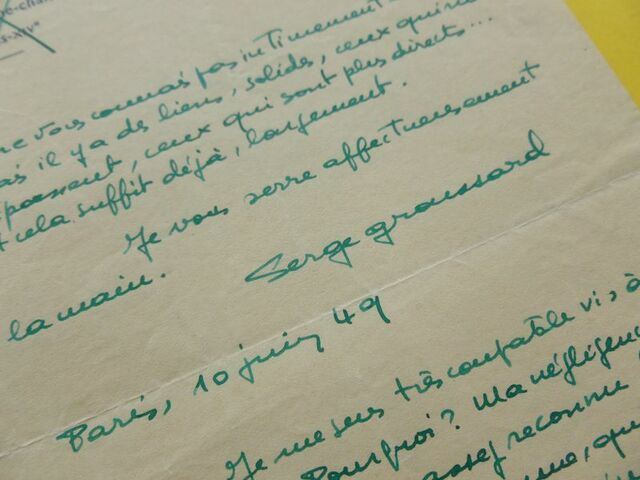 vous connais pas intimement
il y a des liens, solides, ceux qui
ceux qui sont plus directs...
cela suffit déjà, largement.
Je vous serre affectueusement
la main.
Serge Groussard
Paris, 10 juin 49
Je me sens très coupable vis à
Pourquoi? Ma négligence
assez reconnu